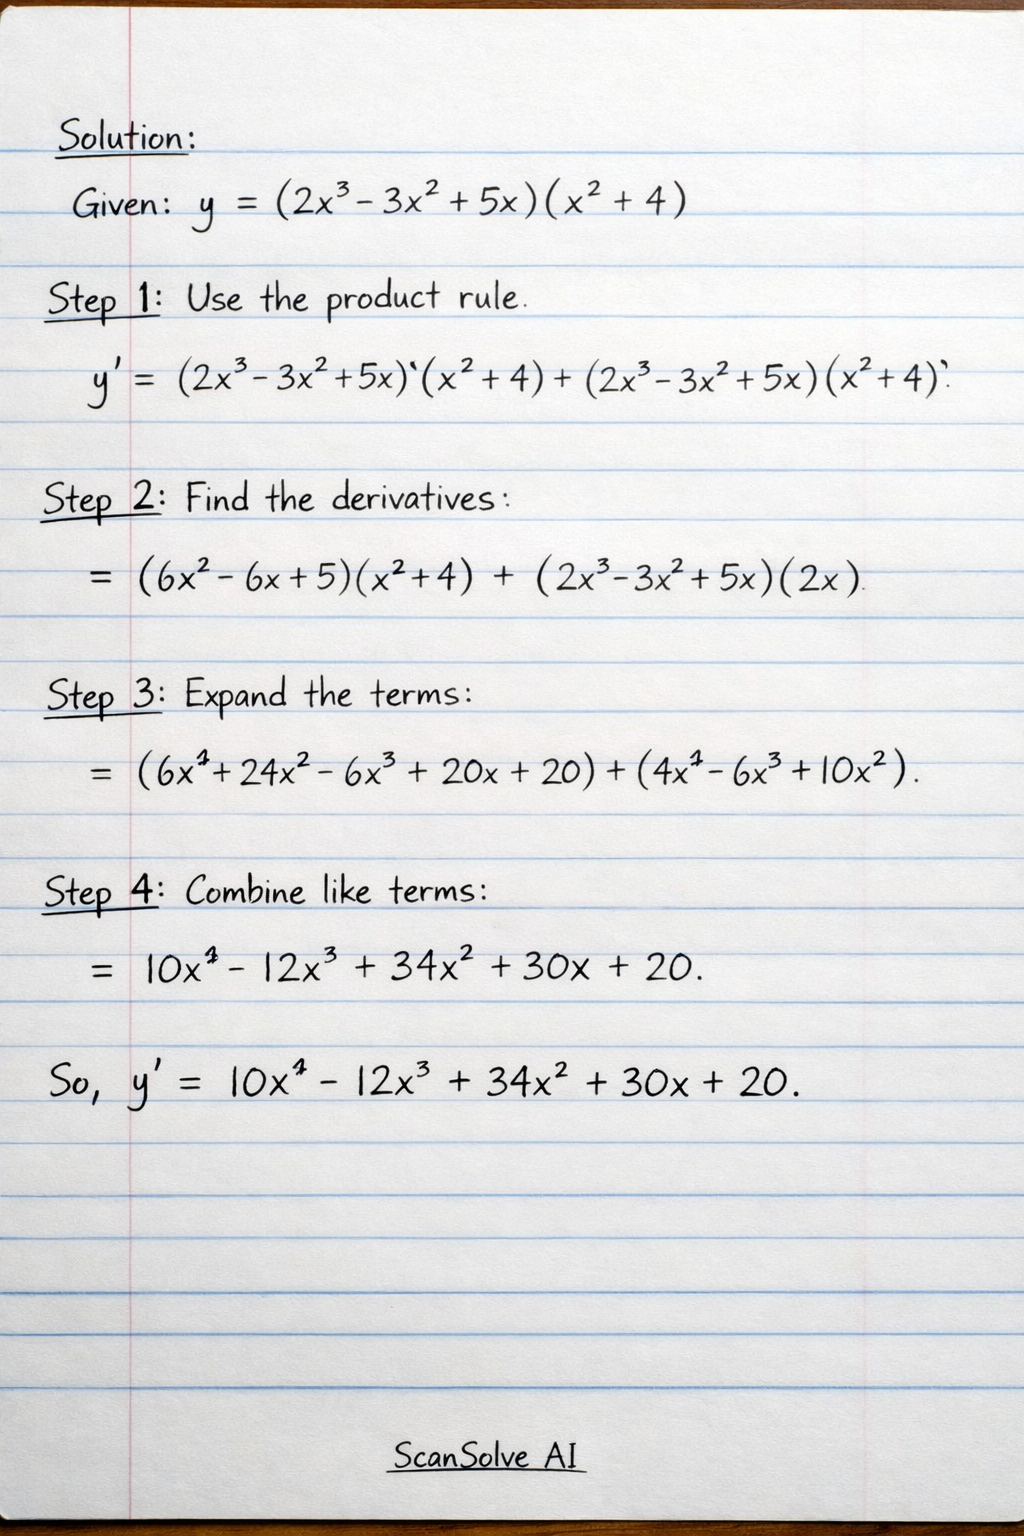 Solution:
Given: y = (2x³ - 3x² + 5x)(x² + 4)
Step 1: Use the product rule.
y' = (2x³ - 3x² + 5x)'(x² + 4) + (2x³ - 3x² + 5x)(x² + 4)'.
Step 2: Find the derivatives:
= (6x² - 6x + 5)(x² + 4) + (2x³ - 3x² + 5x)(2x).
Step 3: Expand the terms:
= (6x⁴ + 24x² - 6x³ + 20x + 20) + (4x⁴ - 6x³ + 10x²).
Step 4: Combine like terms:
= 10x⁴ - 12x³ + 34x² + 30x + 20.
So, y' = 10x⁴ - 12x³ + 34x² + 30x + 20.
ScanSolve AI